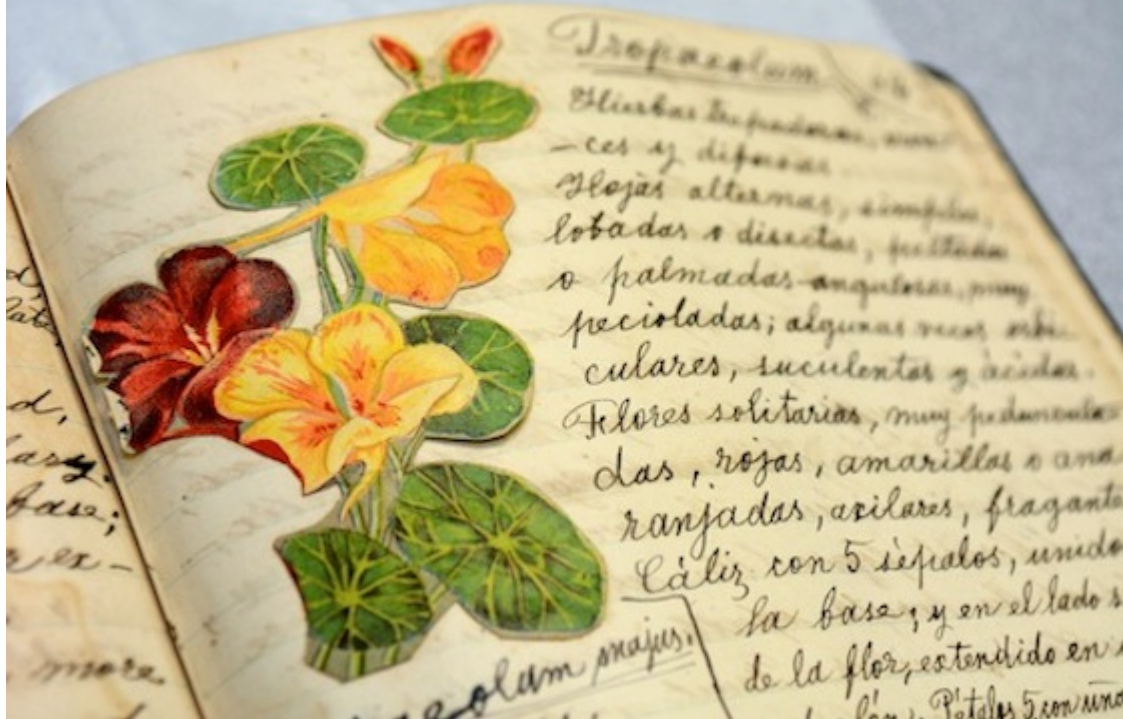 d,
d,
base;
ex-
more
Tropaeolum
Hierbas trepadoras,
-ces y difusas.
Hojas alternas, simples,
lobadas o disectas, peltadas
o palmadas-angulosas, muy
pecioladas; algunas veces orbi-
culares, suculentas y ácidas.
Flores solitarias, muy peduncula-
das, rojas, amarillas o ana
ranjadas, axilares, fragante
Cáliz con 5 sépalos, unido
la base; y en el lado s
de la flor, extendido en
Pétalos 5 con uña
olum majus.